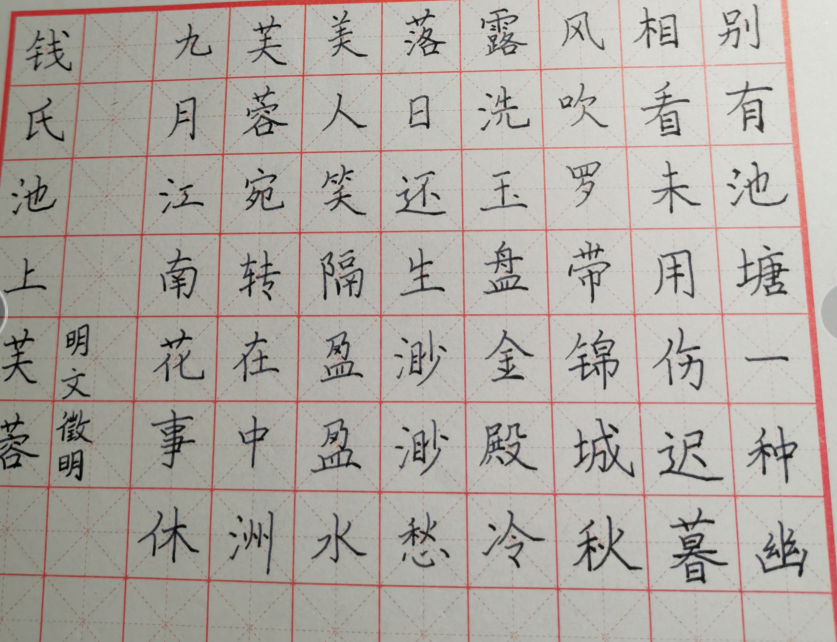 钱氏池上芙蓉
明文徵明
九月江南花事休
芙蓉宛转在中洲
美人笑隔盈盈水
落日还生渺渺愁
露洗玉盘金殿冷
风吹罗带锦城秋
相看未用伤迟暮
别有池塘一种幽